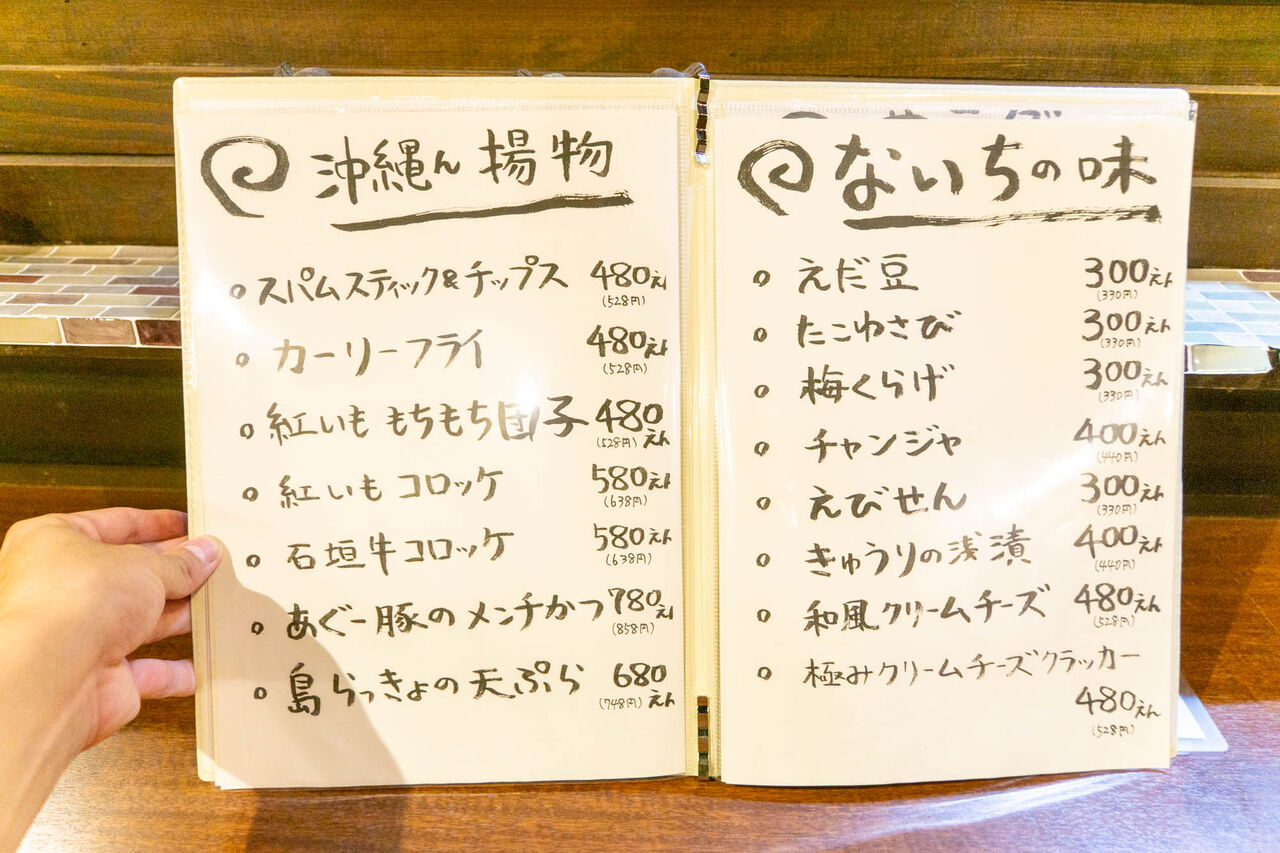 沖縄ん 揚物
スパムスティック&チップス 480えん
(528円)
カーリーフライ 480えん
(528円)
紅いも もちもち団子 480えん
(528円)
紅いもコロッケ 580えん
(638円)
石垣牛コロッケ 580えん
(638円)
あぐー豚のメンチかつ 780えん
(858円)
島らっきょの天ぷら 680えん
(748円)
ないちの味
えだ豆 300えん
(330円)
たこわさび 300えん
(330円)
梅くらげ 300えん
(330円)
チャンジャ 400えん
(440円)
えびせん 300えん
(330円)
きゅうりの浅漬 400えん
(440円)
和風クリームチーズ 480えん
(528円)
極みクリームチーズクラッカー
480えん
(528円)